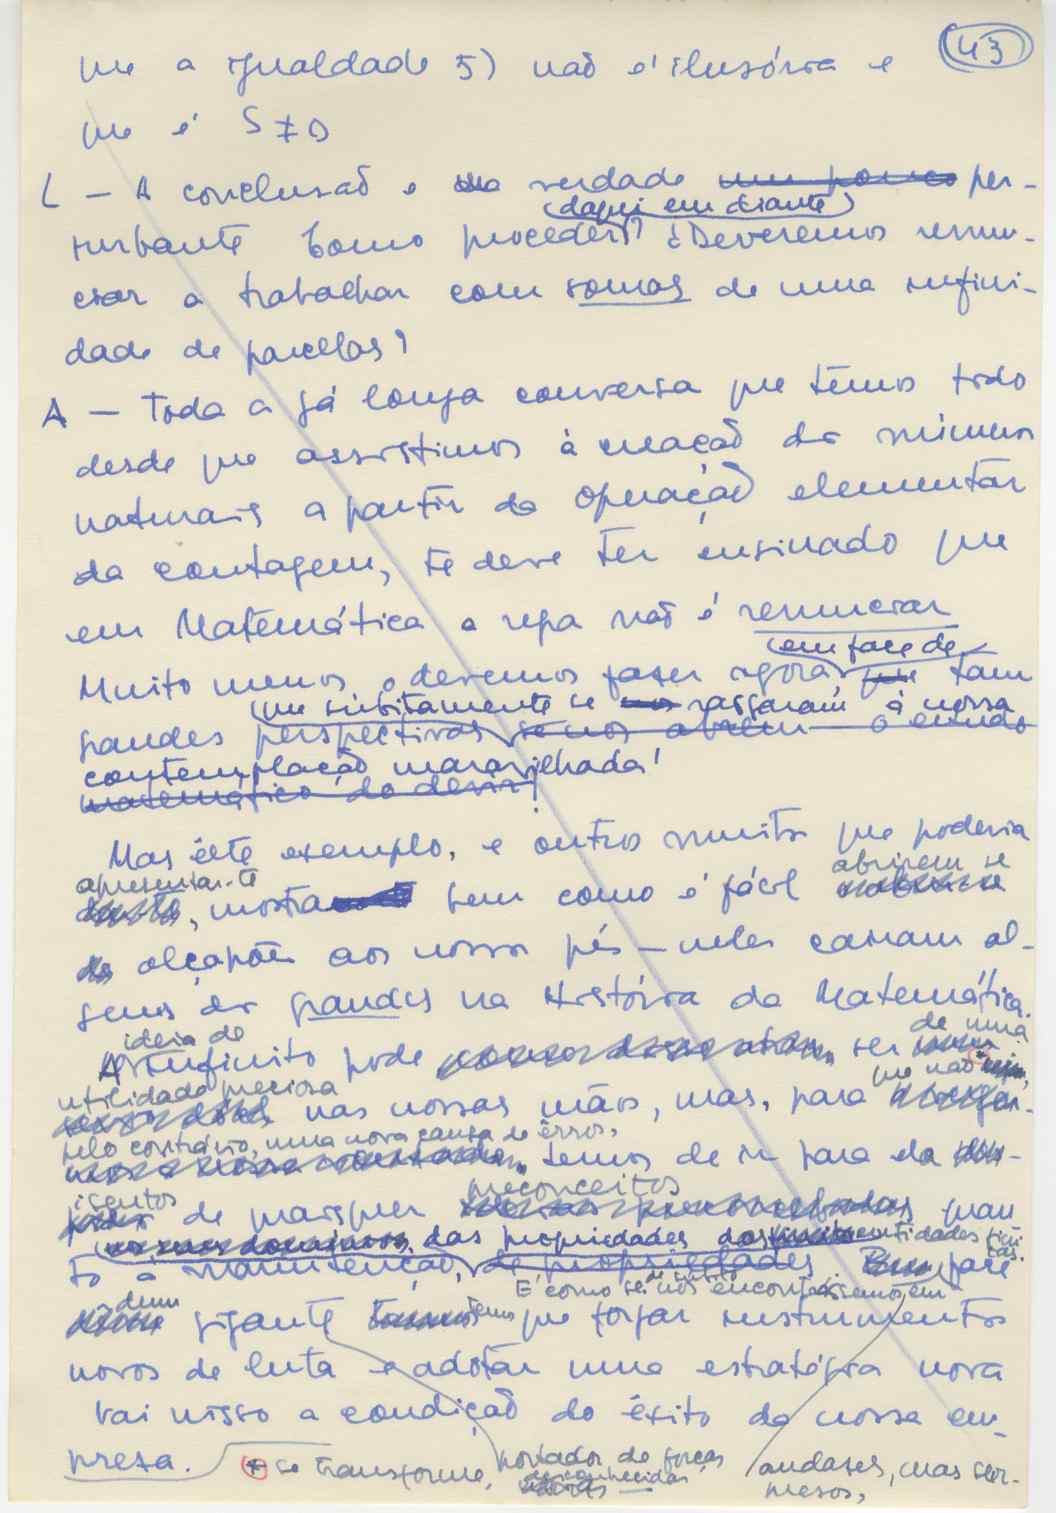 43
que a igualdade 5) não é ilusória e
que é S ≠ 0
L — A conclusão é na verdade um pouco per-
(daqui em diante)
turbante Como proceder? Deveremos renun-
ciar a trabalhar com somas de uma infini-
dade de parcelas?
A — Toda a já longa conversa que temos tido
desde que assistimos à creação dos números
naturais a partir da operação elementar
da contagem, te deve ter ensinado que
em Matemática a regra não é renunciar
(em face de
Muito menos o devemos fazer agora que tam
que subitamente se rasgaram à nossa
grandes perspectivas se nos abrem o mundo
contemplação maravilhada!
matemático do devir!
Mas êste exemplo, e outros muitos que poderia
apresentar-te abrirem se
, mostra bem como é fácil
alçapões aos nossos pés — neles cairam al-
guns dos grandes na História da Matemática.
ideia de de uma
A infinito pode ser
utilidade preciosa que não
nas nossas mãos, mas, para
pelo contrário, uma nova causa de êrros,
temos de ir para ela
isentos preconceitos
de quaisquer quan
das propriedades das entidades fini
tas.
to à manutenção, de propriedades Em face
É como se de súbito nos encontrássemos em
dum gigante temos que forjar instrumentos
novos de luta e adotar uma estratégia nova
Vai nisso a condição do êxito da nossa em-
presa. * se transforme, portador de forças audazes, mas ser-
desconhecidas